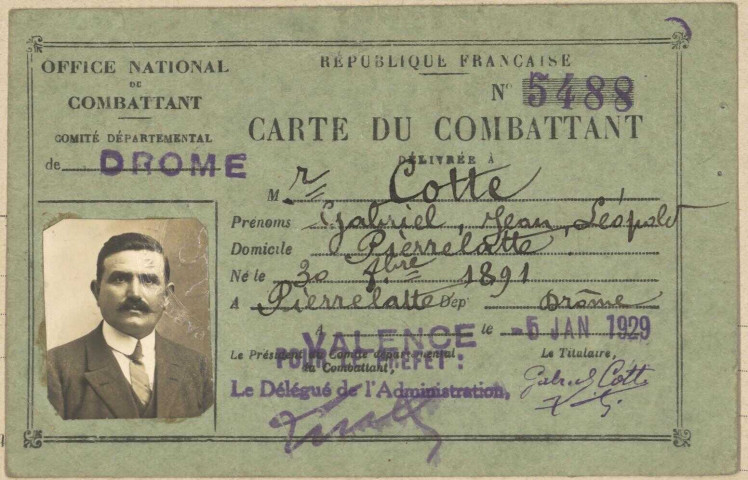 OFFICE NATIONAL
DU
COMBATTANT
COMITÉ DÉPARTEMENTAL
de DROME
RÉPUBLIQUE FRANÇAISE
N° 5488
CARTE DU COMBATTANT
DÉLIVRÉE À
Mr Cotte
Prénoms Gabriel, Jean, Léopold
Domicile Pierrelatte
Né le 30 7bre 1891
A Pierrelatte Dép Drôme
A VALENCE le -5 JAN 1929
Le Président du Comité départemental
du Combattant,
POUR LE PREFET :
Le Délégué de l'Administration,
Le Titulaire,
Gabriel Cotte